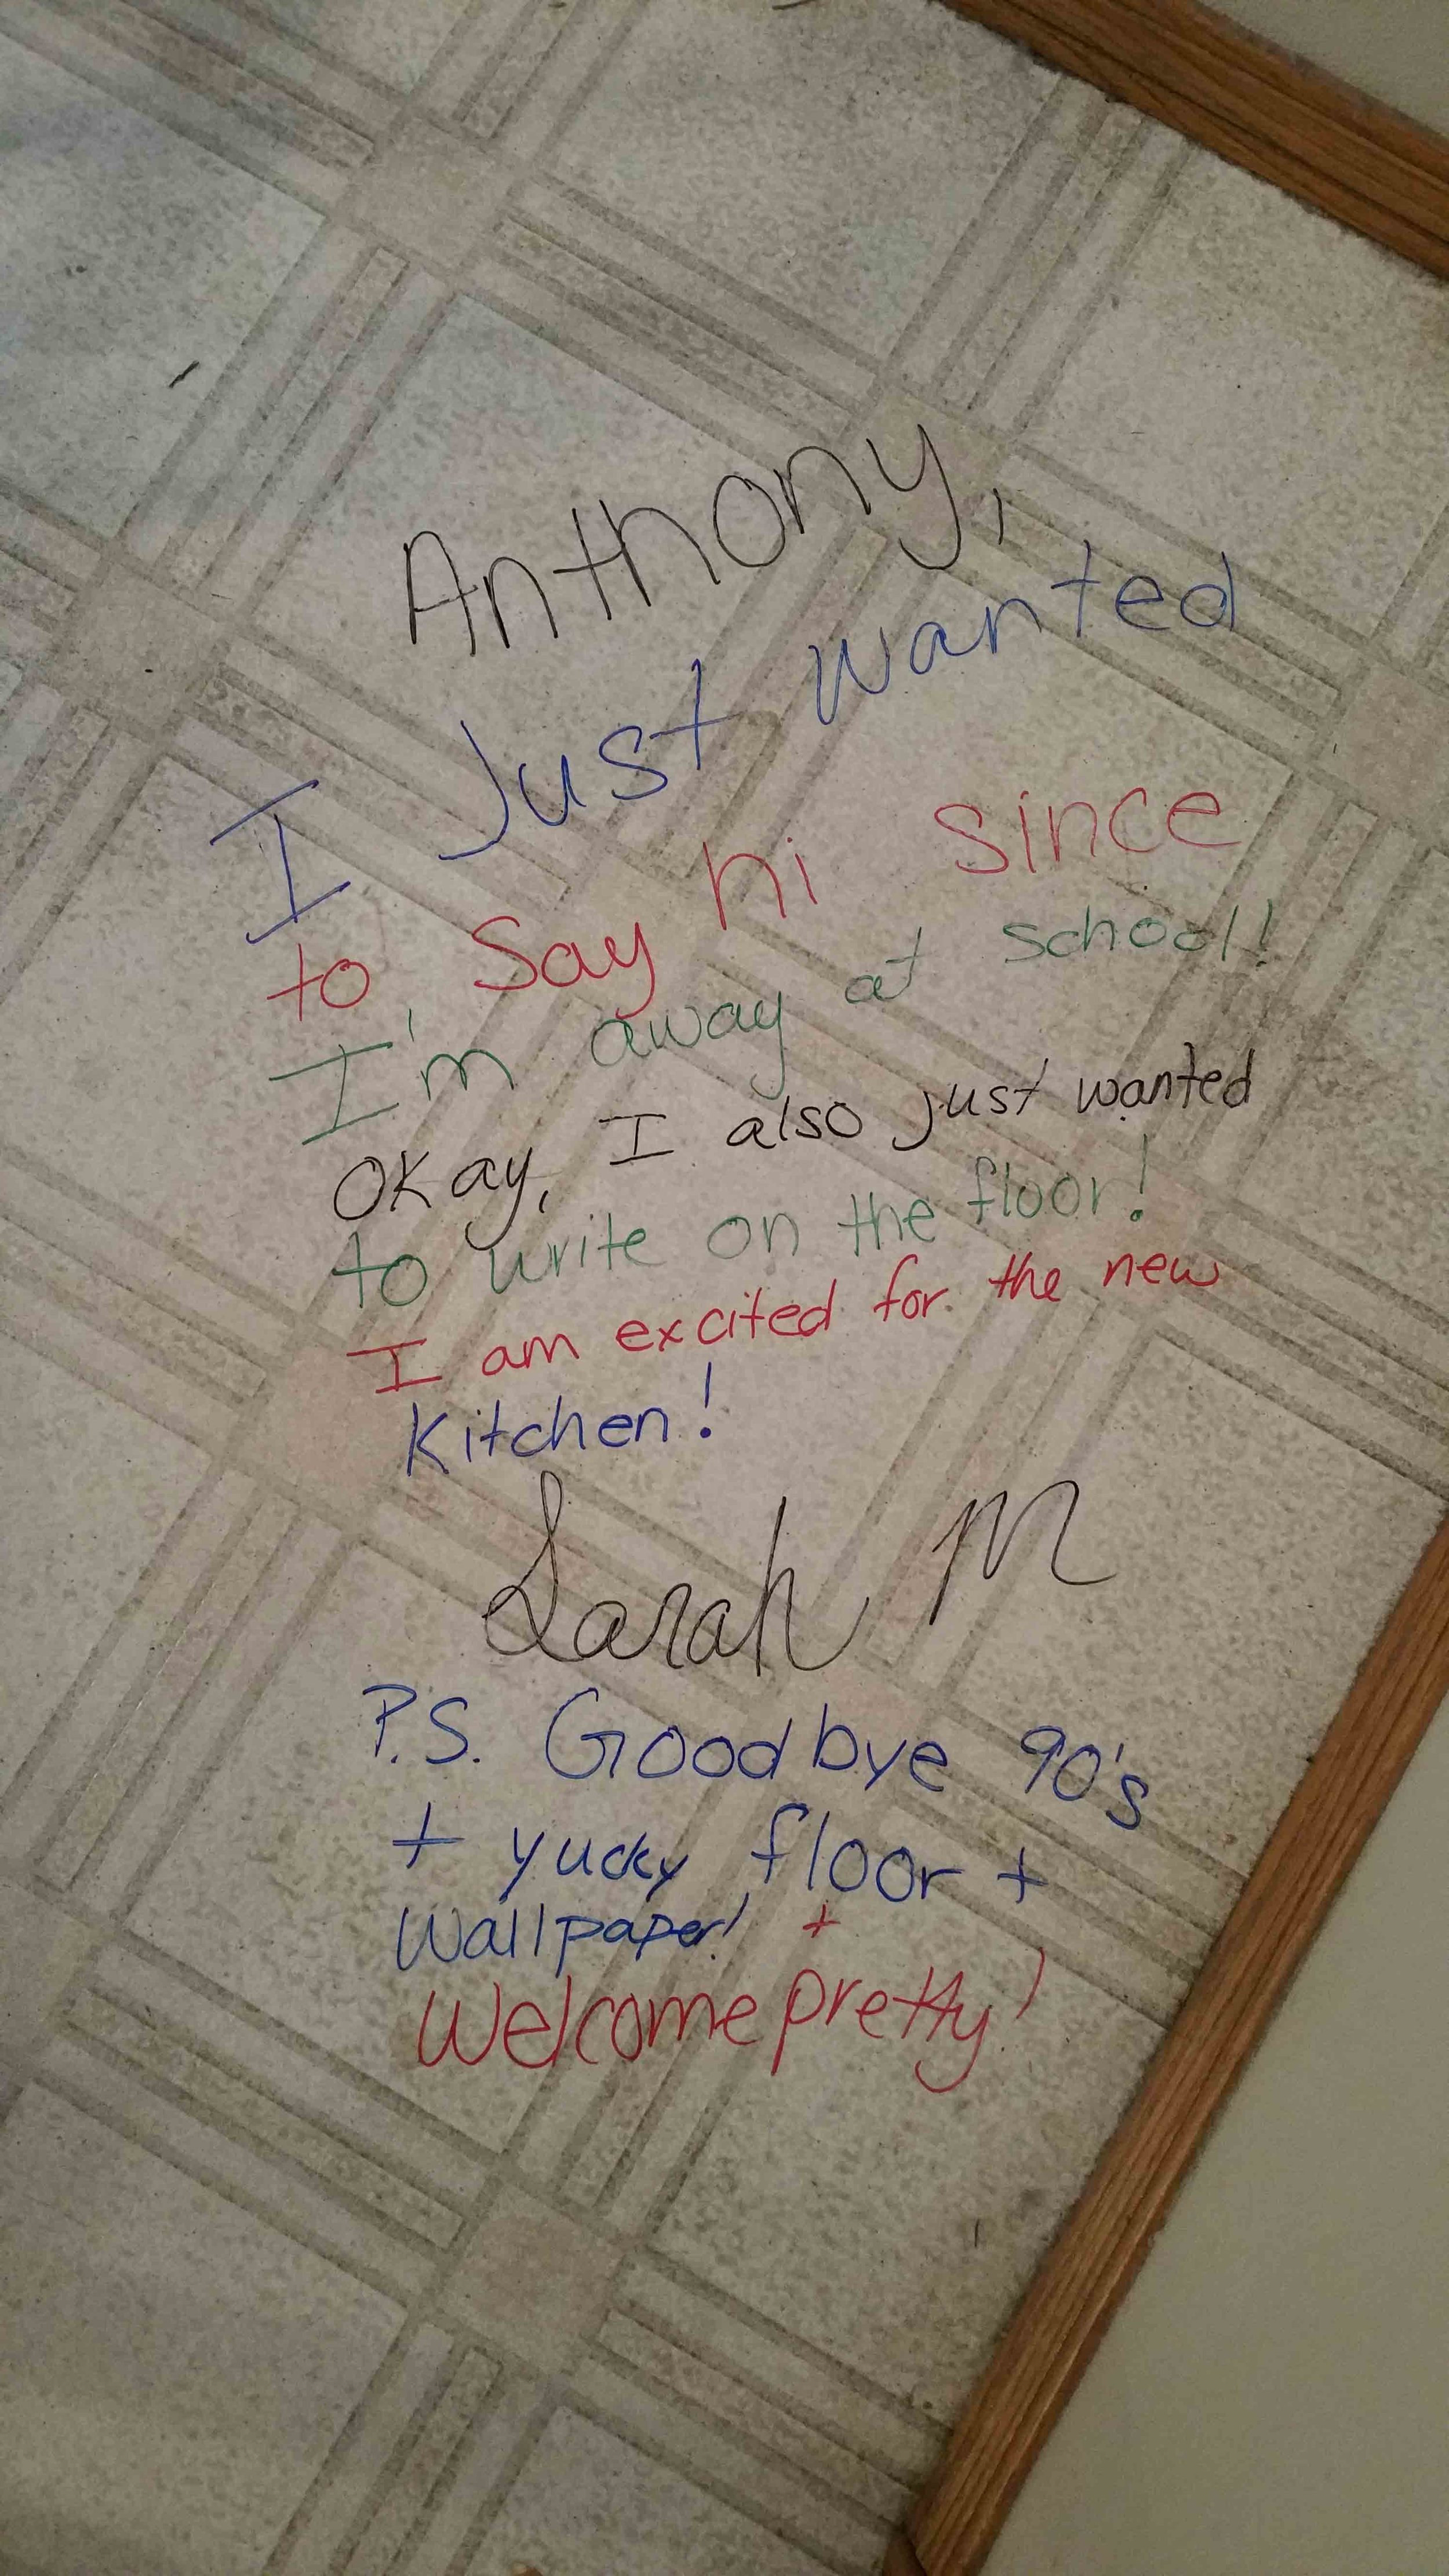 Anthony,
I Just wanted
to say hi since
I'm away at school!
Okay, I also just wanted
to write on the floor!
I am excited for the new
Kitchen!
Sarah M
P.S. Goodbye 90's
+ yucky floor +
Wallpaper! +
Welcome pretty!